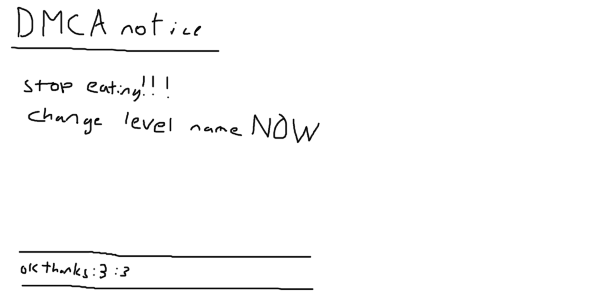 DMCA notice
stop eating!!!
change level name NOW
ok thanks :3 :3